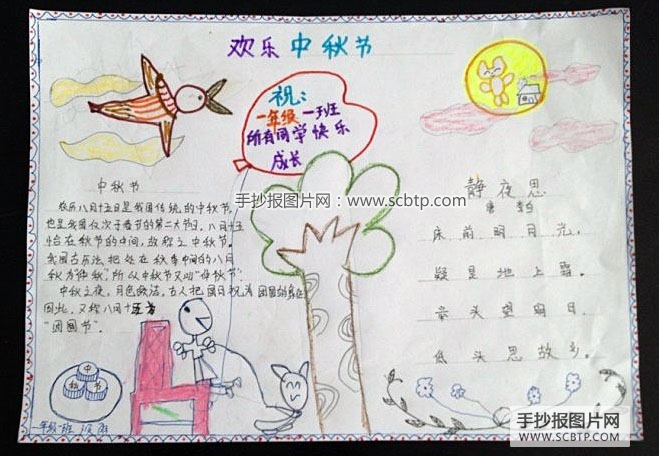 欢乐中秋节
祝:
一年级一班
所有同学快乐
成长
手抄报图片网：www.scbtp.com
中秋节
农历八月十五日是我国传统的中秋节,
也是我国仅次于春节的第二大节日。八月十五
恰在秋节的中间,故称之中秋节。
我国古历法把处在秋季中间的八月
称为"仲秋",所以中秋节又叫"仲秋节"
中秋之夜,月色皎洁,古人把圆月视为团圆的象征
因此,又称八月十五为
"团圆节"。
静夜思
唐 李白
床前明月光,
疑是地上霜。
举头望明月,
低头思故乡。
中
秋 节
一年级一班
手抄报图片网
WWW.SCBTP.COM